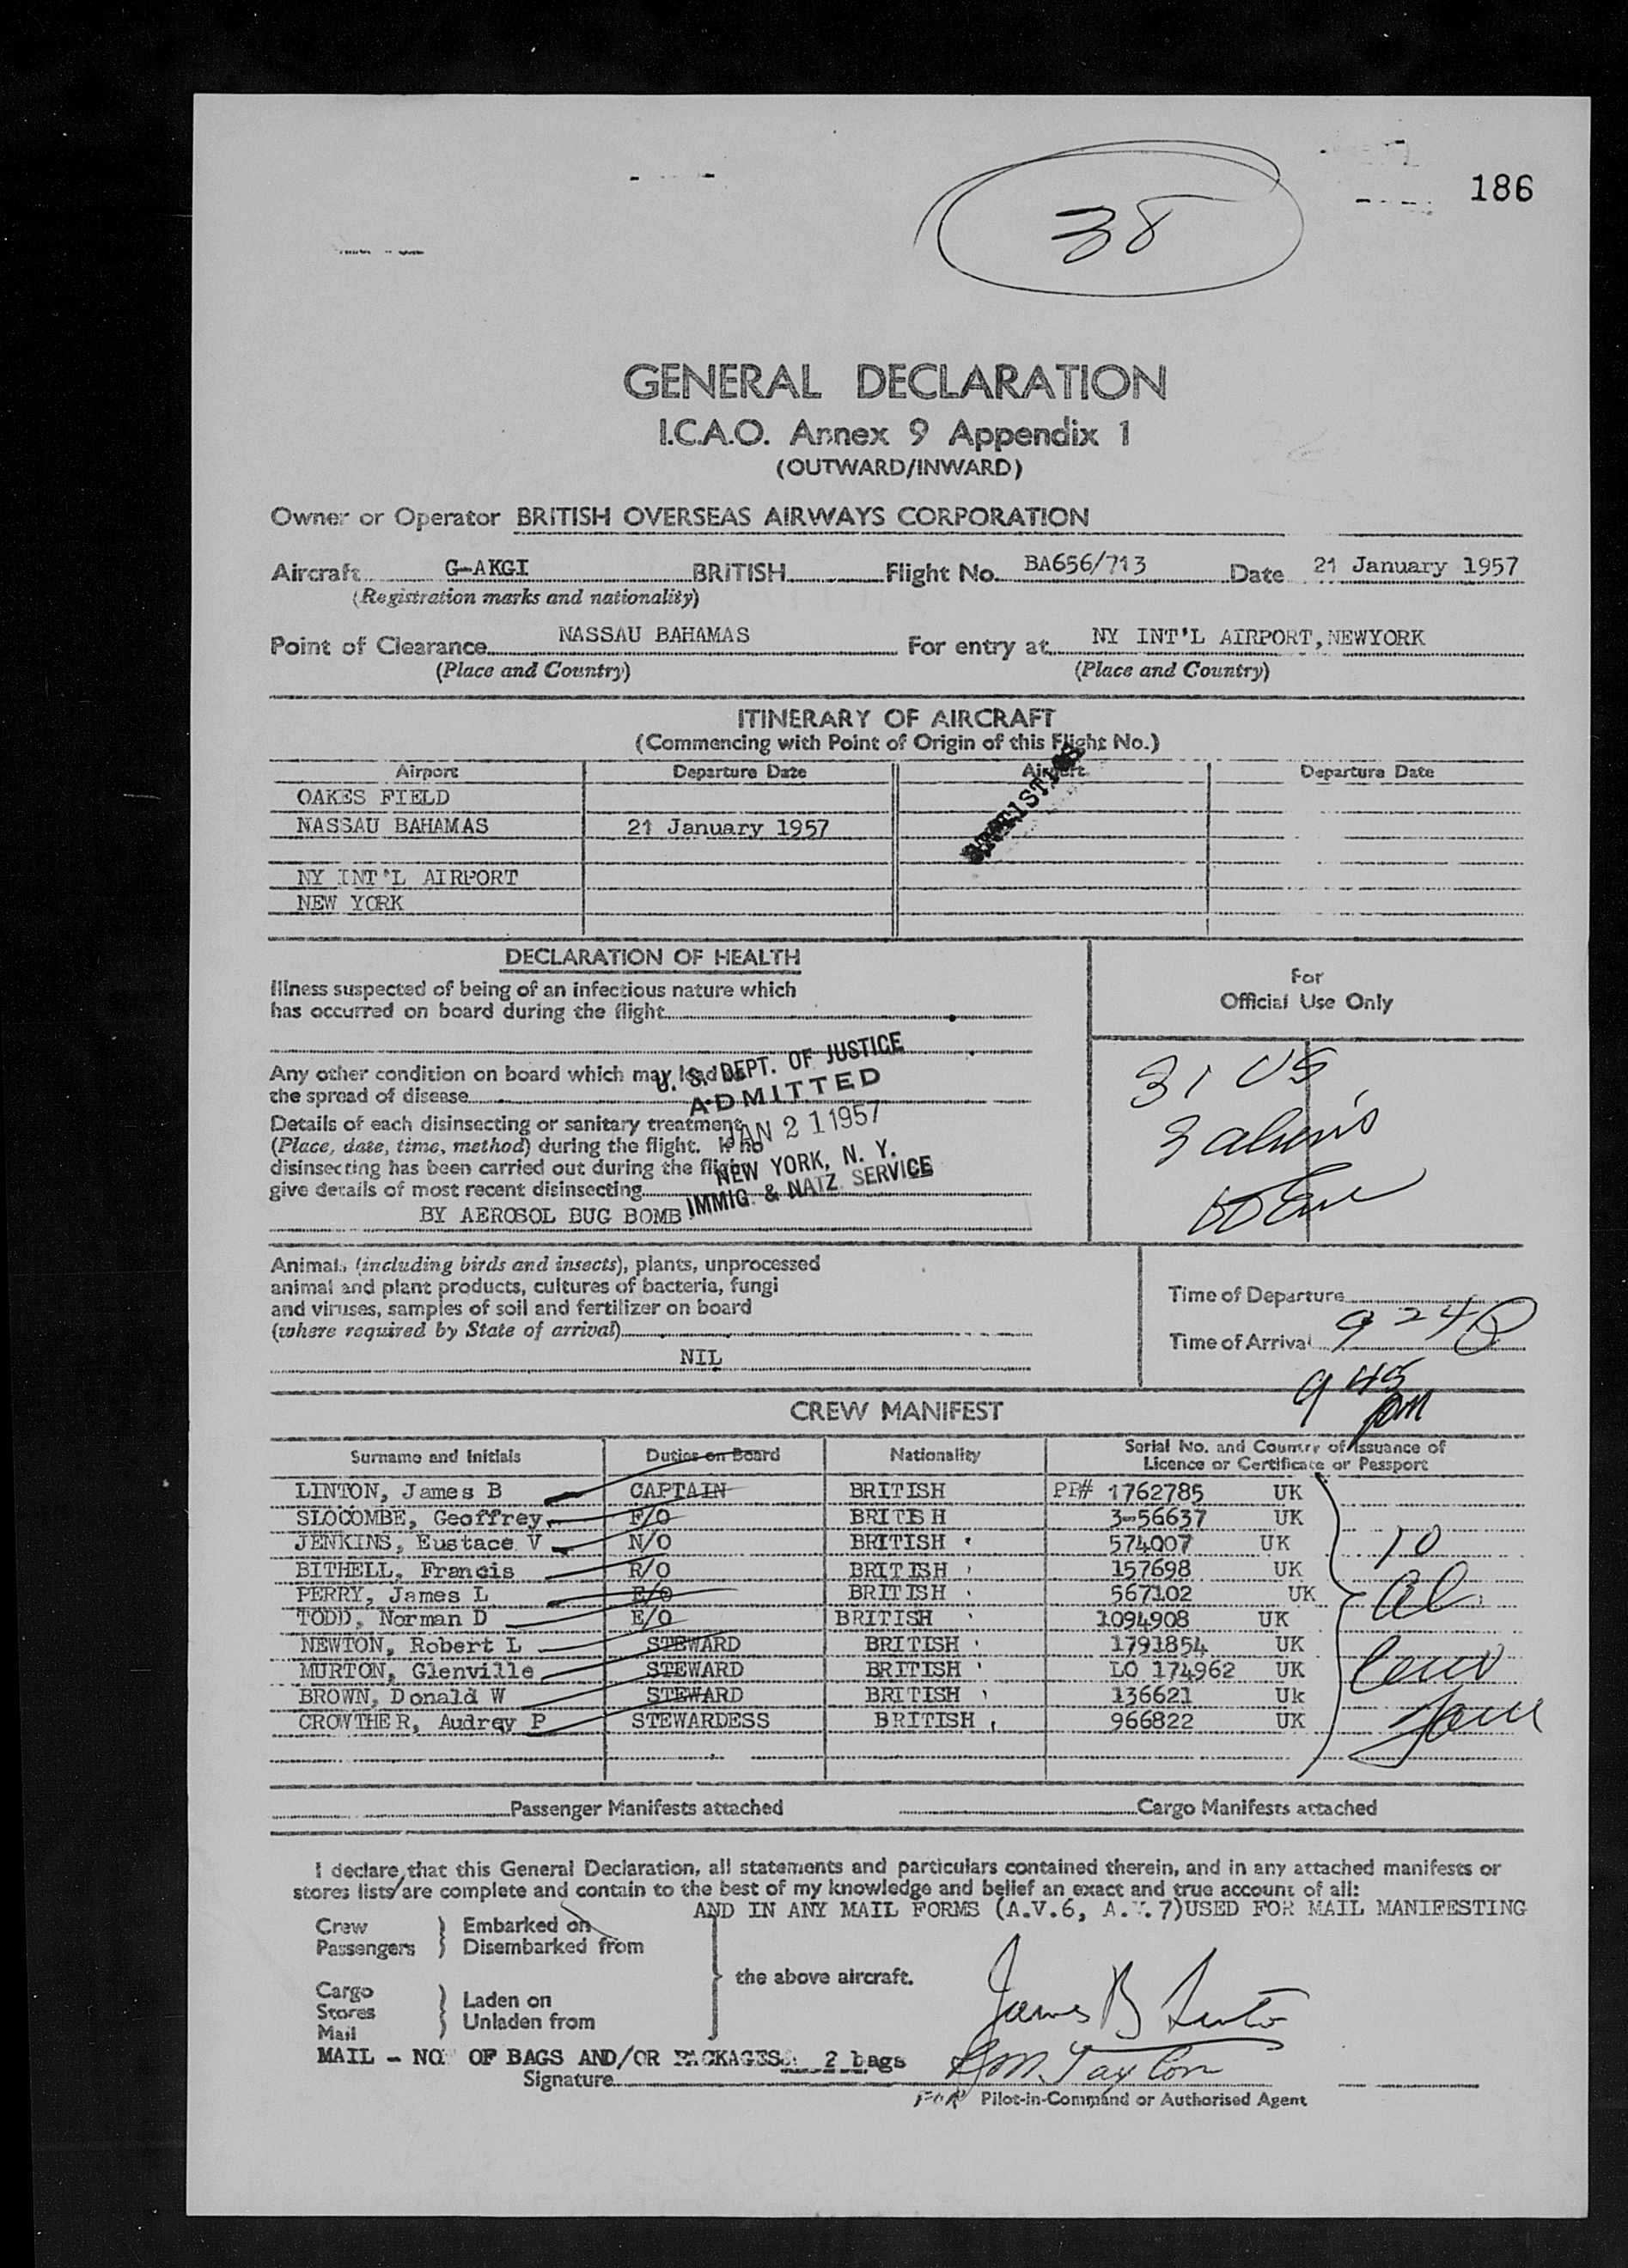 38
186
GENERAL DECLARATION
I.C.A.O. Annex 9 Appendix 1
(OUTWARD/INWARD)
Owner or Operator BRITISH OVERSEAS AIRWAYS CORPORATION
Aircraft G-AKGI BRITISH Flight No. BA656/713 Date 21 January 1957
(Registration marks and nationality)
Point of Clearance NASSAU BAHAMAS For entry at NY INT'L AIRPORT, NEWYORK
(Place and Country) (Place and Country)
ITINERARY OF AIRCRAFT
(Commencing with Point of Origin of this Flight No.)
Airport Departure Date Airport Departure Date
OAKES FIELD
NASSAU BAHAMAS 21 January 1957
NY INT'L AIRPORT
NEW YORK
DECLARATION OF HEALTH
Illness suspected of being of an infectious nature which
has occurred on board during the flight
Any other condition on board which may lead to
the spread of disease
Details of each disinsecting or sanitary treatment
(Place, date, time, method) during the flight. If no
disinsecting has been carried out during the flight
give details of most recent disinsecting
BY AEROSOL BUG BOMB
U. S. DEPT. OF JUSTICE
ADMITTED
JAN 21 1957
NEW YORK, N. Y.
IMMIG. & NATZ. SERVICE
For
Official Use Only
31 US
3 aliens
Animals (including birds and insects), plants, unprocessed
animal and plant products, cultures of bacteria, fungi
and viruses, samples of soil and fertilizer on board
(where required by State of arrival)
NIL
Time of Departure
Time of Arrival 9 24 P
9 45
pm
CREW MANIFEST
Surname and Initials Duties on Board Nationality Serial No. and Country of Issuance of
Licence or Certificate or Passport
LINTON, James B CAPTAIN BRITISH PP# 1762785 UK
SLOCOMBE, Geoffrey F/O BRITISH 3-56637 UK
JENKINS, Eustace V N/O BRITISH 574007 UK
BITHELL, Francis R/O BRITISH 157698 UK
PERRY, James L E/O BRITISH 567102 UK
TODD, Norman D E/O BRITISH 1094908 UK
NEWTON, Robert L STEWARD BRITISH 1791854 UK
MURTON, Glenville STEWARD BRITISH LO 174962 UK
BROWN, Donald W STEWARD BRITISH 136621 Uk
CROWTHER, Audrey P STEWARDESS BRITISH 966822 UK
10
al
Passenger Manifests attached Cargo Manifests attached
I declare that this General Declaration, all statements and particulars contained therein, and in any attached manifests or
stores lists are complete and contain to the best of my knowledge and belief an exact and true account of all:
AND IN ANY MAIL FORMS (A.V.6, A.V.7)USED FOR MAIL MANIFESTING
Crew
Passengers
Embarked on
Disembarked from
Cargo
Stores
Mail
Laden on
Unladen from
the above aircraft.
James B Linton
MAIL - NO OF BAGS AND/OR PACKAGES 2 bags
Signature
G M. Taylor
FOR Pilot-in-Command or Authorised Agent